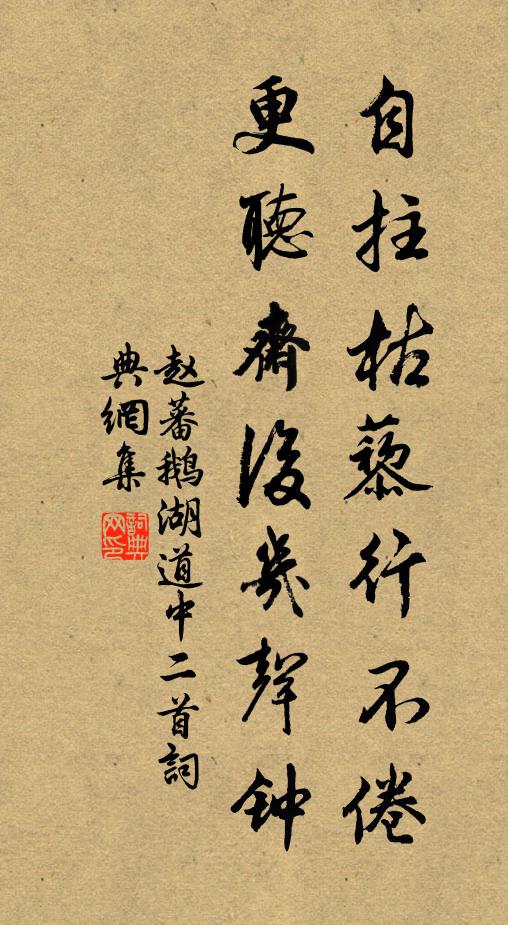 自拄枯藜行不倦
更聽齋後幾聲钟
赵蕃鵝湖道中二首詞
典網集
詞典网印